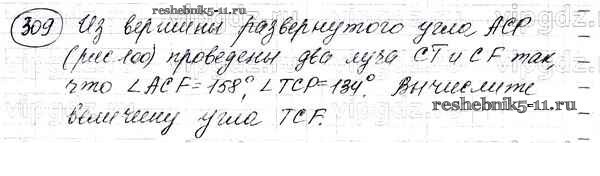 309 Из вершины развернутого угла ACP
(рис.100) проведены два луча CT и CF так,
что ∠ACF=158°, ∠TCP=134°. Вычислите
величину угла TCF.
reshebnik5-11.ru
reshebnik5-11.ru